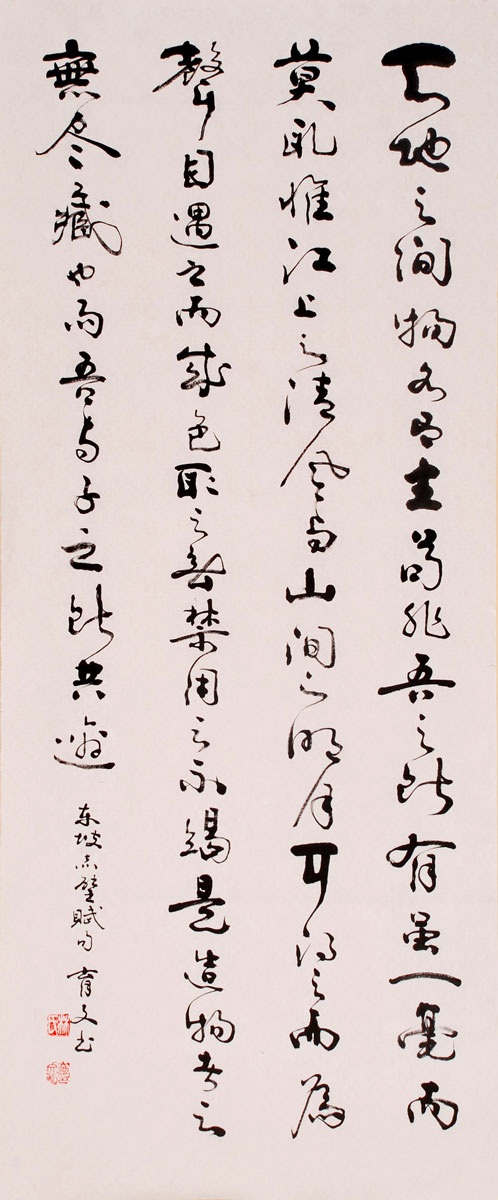 天地之间物各有主苟非吾之所有虽一毫而
莫取惟江上之清风与山间之明月耳得之而為
聲目遇之而成色取之無禁用之不竭是造物者之
無尽藏也而吾与子之所共適
东坡赤壁賦句 育文书